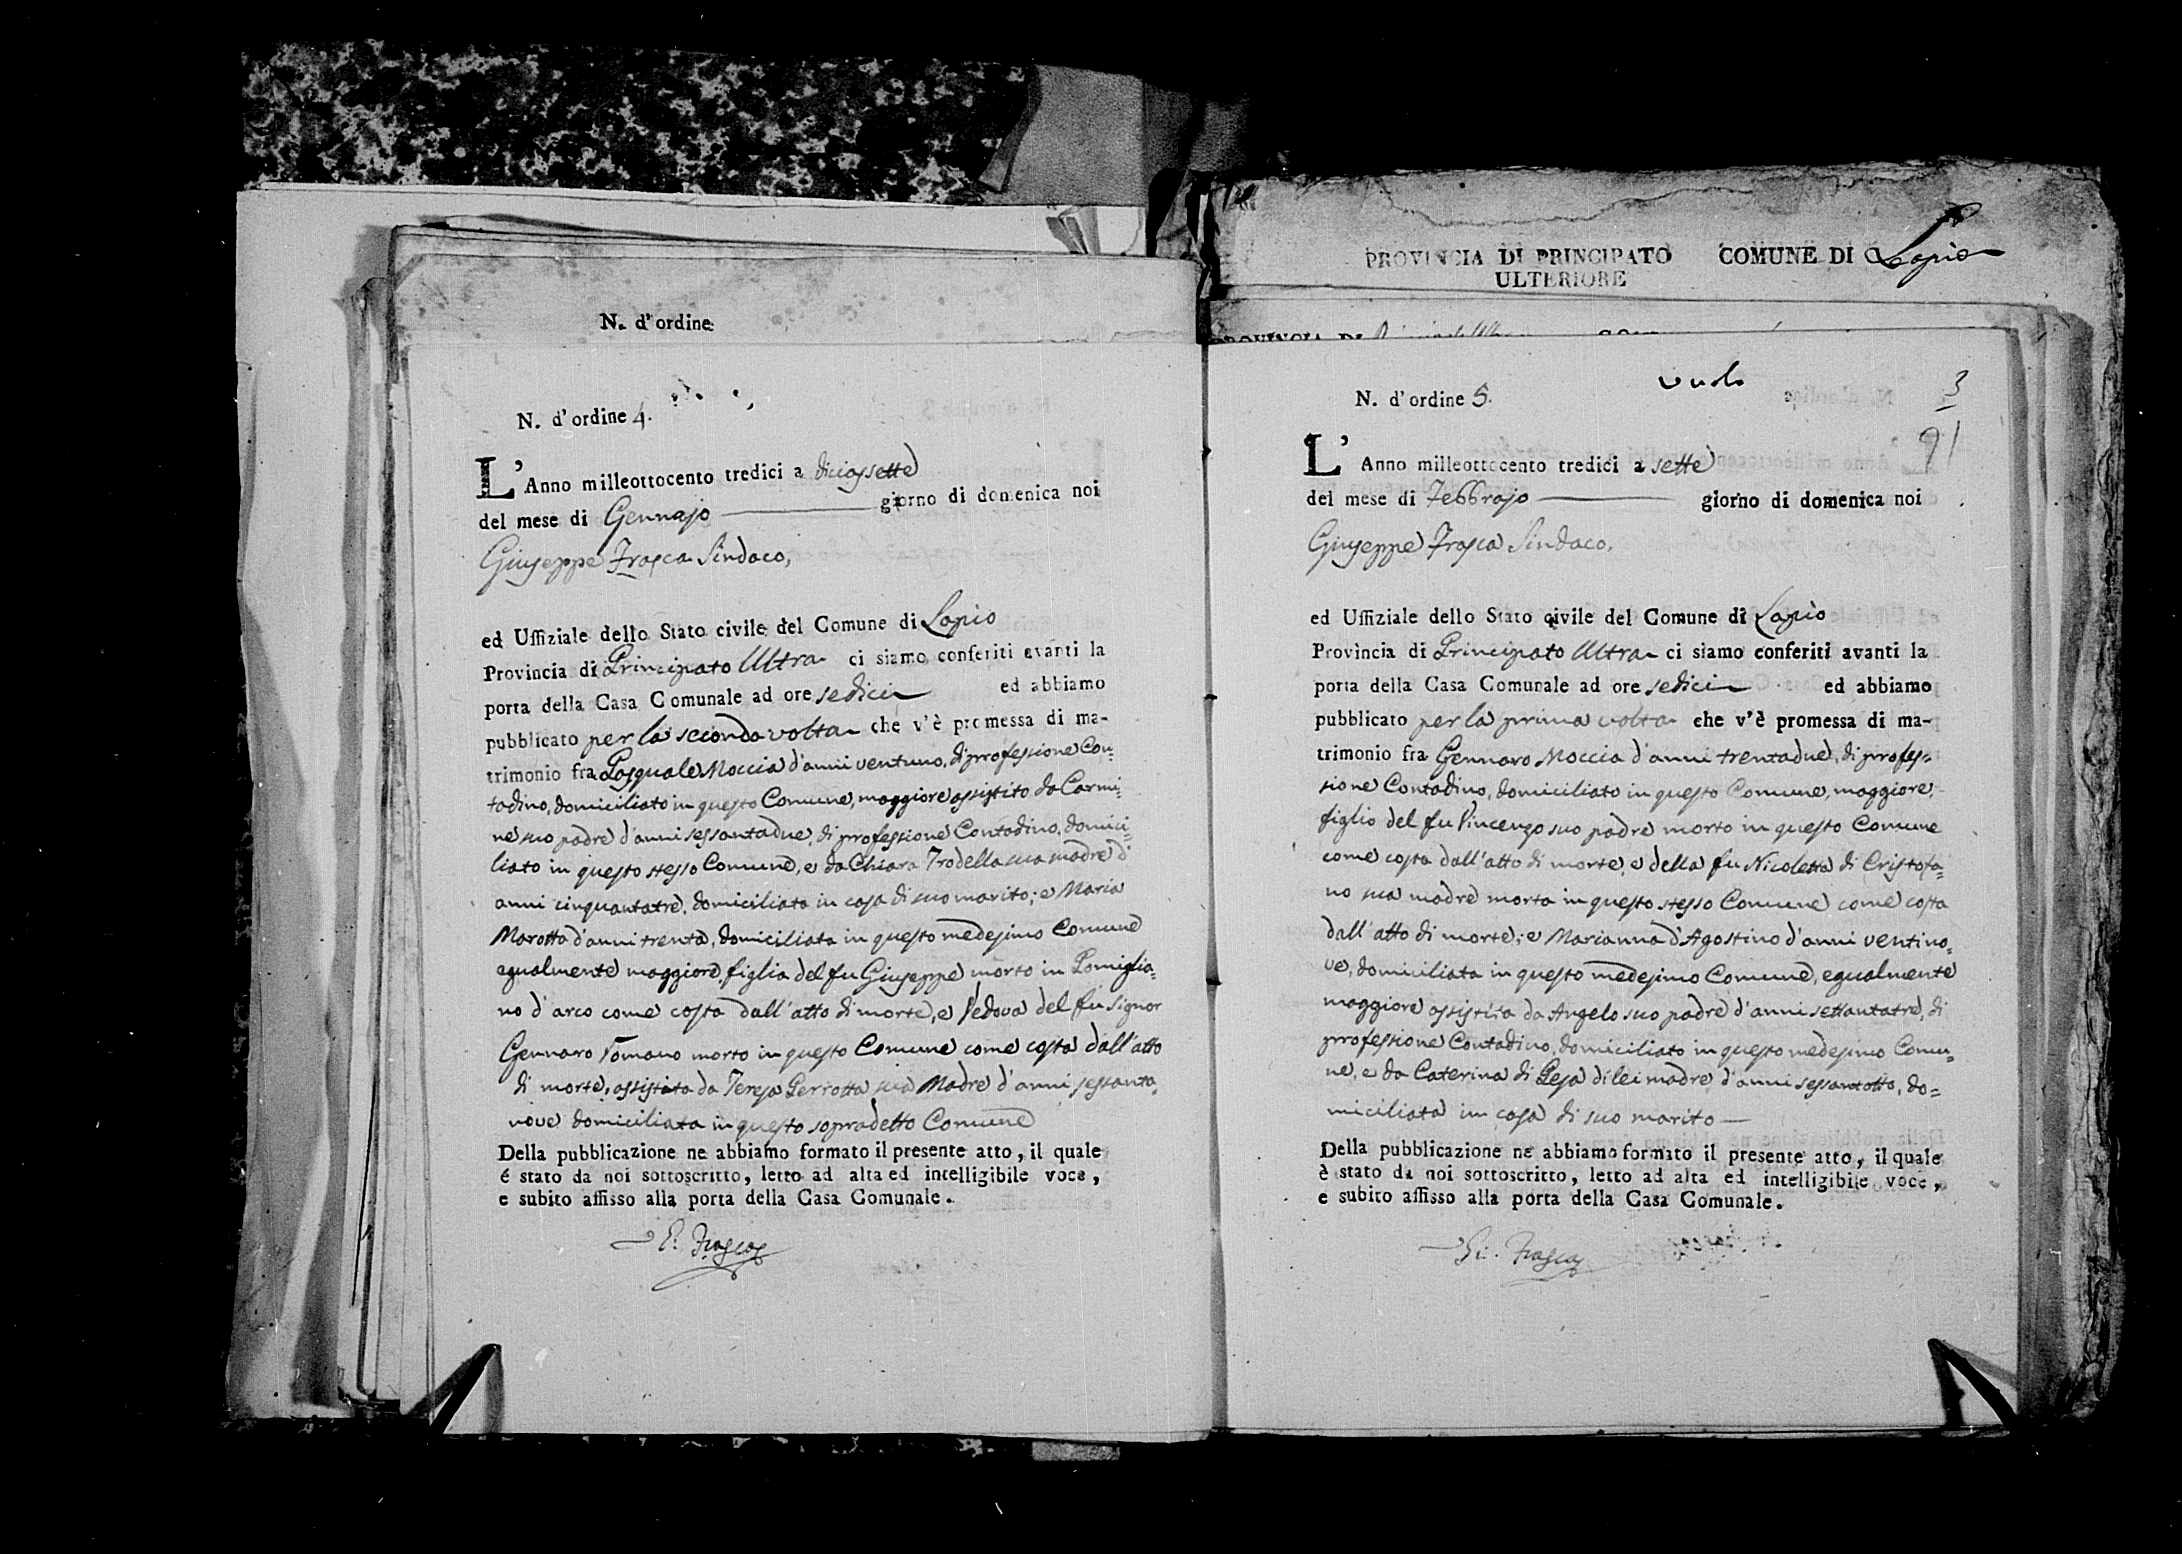 N. d'ordine
N. d'ordine 4.
L'Anno milleottocento tredici a diciassette
del mese di Gennajo giorno di domenica noi
Giuseppe Frasca Sindaco,
ed Uffiziale dello Stato civile del Comune di Lapio
Provincia di Principato Ultra ci siamo conferiti avanti la
porta della Casa Comunale ad ore sedici ed abbiamo
pubblicato per la seconda volta che v'è promessa di ma-
trimonio fra Pasquale Moccia d'anni ventuno, di professione Con=
tadino, domiciliato in questo Comune, maggiore assistito da Carmi=
ne suo padre d'anni sessantadue, di professione Contadino, domici=
liato in questo stesso Comune, e da Chiara Trodella sua madre d'
anni cinquantatre, domiciliata in casa di suo marito; e Maria
Marotta d'anni trenta, domiciliata in questo medesimo Comune
egualmente maggiore, figlia del fu Giuseppe morto in Pomiglia=
no d'arco come costa dall'atto di morte, e Vedova del fu Signor
Gennaro Romano morto in questo Comune come costa dall'atto
di morte, assistata da Teresa Perrotta sua Madre d'anni sessanta
nove domiciliata in questo sopradetto Comune
Della pubblicazione ne abbiamo formato il presente atto, il quale
é stato da noi sottoscritto, letto ad alta ed intelligibile voce,
e subito affisso alla porta della Casa Comunale.
Frasca
PROVINCIA DI PRINCIPATO COMUNE DI Lapio
ULTERIORE
3
91
N. d'ordine 5.
L'Anno milleottocento tredici a sette
del mese di Febbrajo giorno di domenica noi
Giuseppe Frasca Sindaco.
ed Uffiziale dello Stato civile del Comune di Lapio
Provincia di Principato Ultra ci siamo conferiti avanti la
porta della Casa Comunale ad ore sedici ed abbiamo
pubblicato per la prima volta che v'è promessa di ma-
trimonio fra Gennaro Moccia d'anni trentadue, di profes=
sione Contadino, domiciliato in questo Comune, maggiore,
figlio del fu Vincenzo suo padre morto in questo Comune
come costa dall'atto di morte, e della fu Nicoletta di Cristofa=
no sua madre morta in questo stesso Comune come costa
dall'atto di morte; e Marianna d'Agostino d'anni ventino=
ve, domiciliata in questo medesimo Comune, egualmente
maggiore assistita da Angelo suo padre d'anni settantatre, di
professione Contadino, domiciliato in questo medesimo Comu=
ne, e da Caterina di Gesa di lei madre d'anni sessantotto, do=
miciliata in casa di suo marito
Della pubblicazione ne abbiamo formato il presente atto, il quale
è stato da noi sottoscritto, letto ad alta ed intelligibile voce,
e subito affisso alla porta della Casa Comunale.
Gi. Frasca